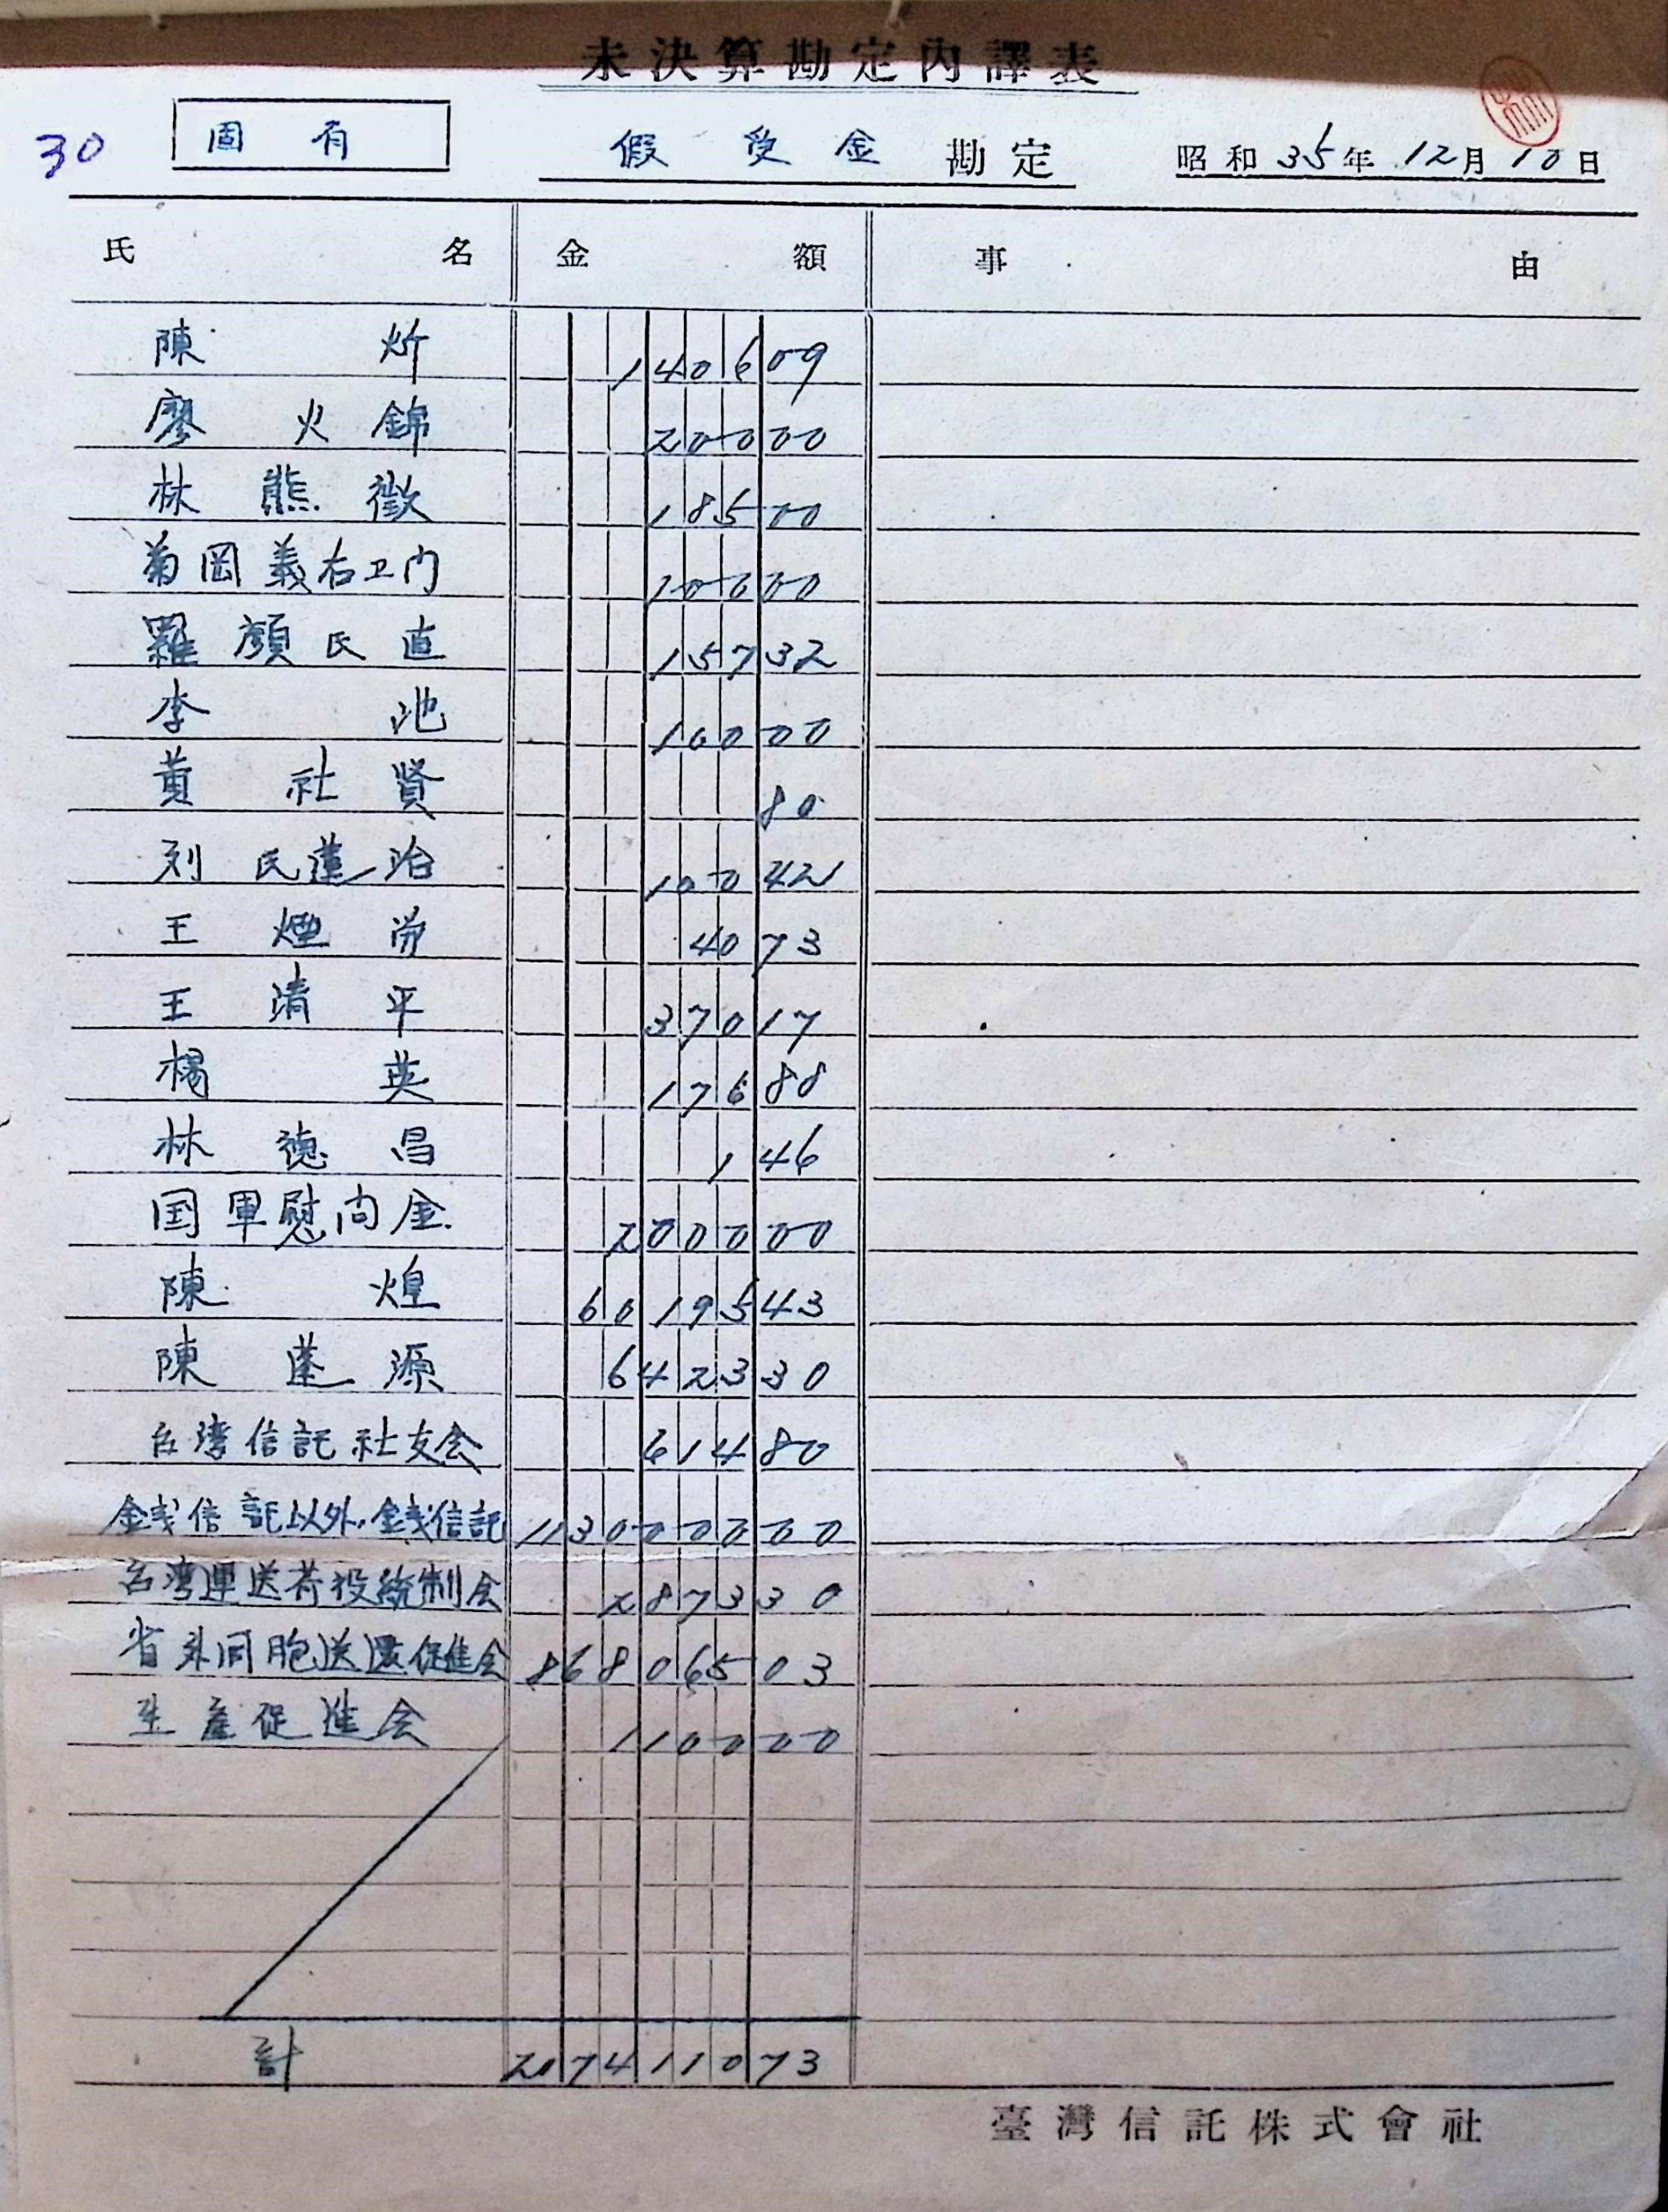 未決算勘定內譯表
30 固有 假受金 勘定 昭和35年12月10日
氏名 金額 事由
陳炘 140609
廖火錦 20000
林熊徵 18500
菊岡義右卫门 10000
羅顏氏直 15732
李池 10000
黄社賢 80
刘氏蓮治 10042
王煙 4073
王清平 37017
楊英 17688
林德昌 146
国軍慰问金 200000
陳煌 6019543
陳逢源 642330
台湾信託社友会 61480
金銭信託以外ノ金銭信託 113000000
台湾運送荷役統制会 287330
省外同胞送還促進会 86806503
生産促進会 110000
計 207411073
臺灣信託株式會社